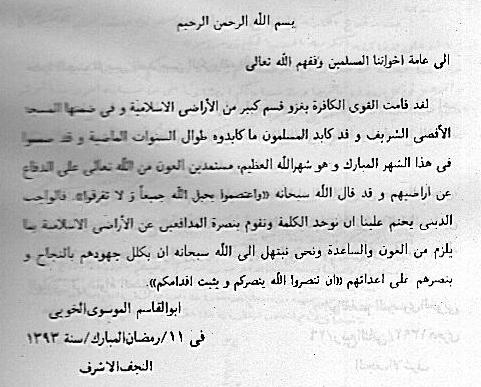 بسم الله الرحمن الرحيم
الى عامة اخواننا المسلمين وفقهم الله تعالى
لقد قامت القوى الكافرة بغزو قسم كبير من الأراضى الاسلامية و فى ضمنها المسجد
الأقصى الشريف و قد كابد المسلمون ما كابدوه طوال السنوات الماضية و قد صمموا
فى هذا الشهر المبارك و هو شهرالله العظيم، مستمدين العون من الله تعالى على الدفاع
عن اراضيهم و قد قال الله سبحانه «واعتصموا بحبل الله جميعاً و لا تفرقوا». فالواجب
الدينى يحتم علينا ان نوحد الكلمة ونقوم بنصرة المدافعين عن الأراضى الاسلامية بما
يلزم من العون والمساعدة ونحن نبتهل الى الله سبحانه ان يكلل جهودهم بالنجاح و
ينصرهم على اعدائهم «ان تنصروا الله ينصركم و يثبت اقدامكم».
ابوالقاسم الموسوى الخويى
فى ١١/رمضان المبارك/سنة ١٣٩٣
النجف الاشرف